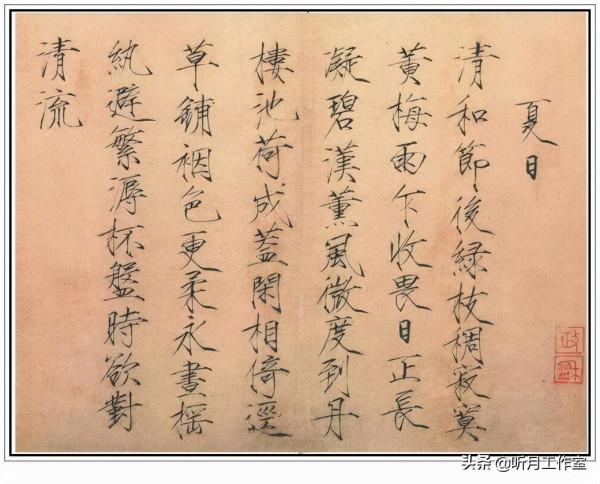 夏日
清和節後緑枝稠寂寞
黃梅雨乍收畏日正長
凝碧漢薰風微度到丹
樓池荷成蓋閑相倚逕
草鋪裀色更柔永晝搖
紈避繁溽杯盤時欲對
清流
政龢
头条 @听月工作室